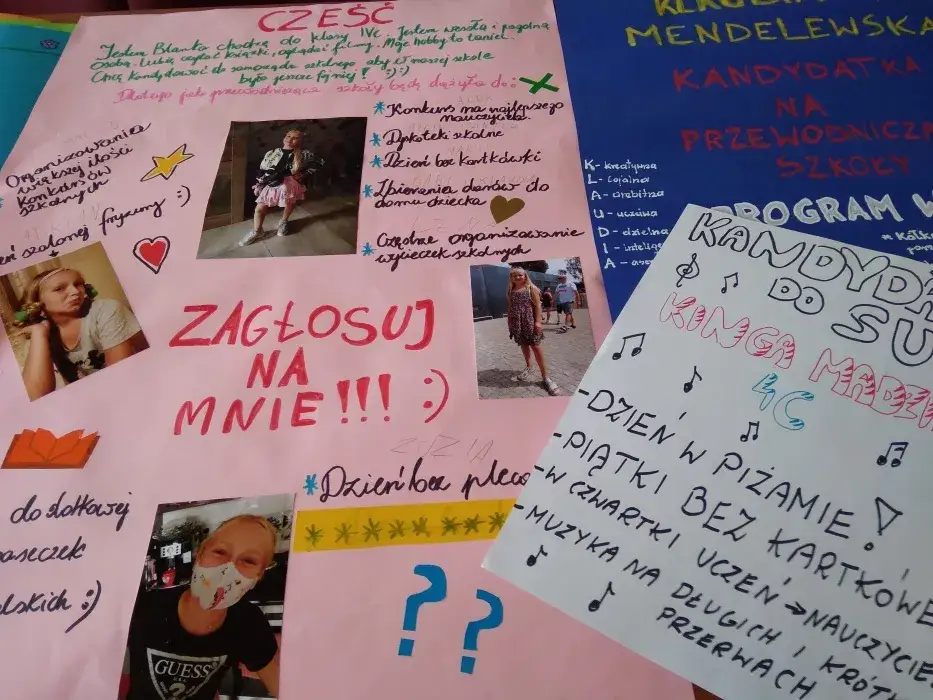 CZEŚĆ
Jestem Blanka chodzę do klasy IVc. Jestem wesołą i pogodną
osobą. Lubię czytać książki, oglądać filmy. Moje hobby to taniec.
Chcę kandydować do samorządu szkolnego aby w naszej szkole
było jeszcze fajniej! :):)
Dlatego jako przewodnicząca szkoły będę dążyła do:
Organizowania
większej ilości
konkursów
szkolnych
szalonej fryzury :)
*Konkurs na najlepszego
nauczyciela
*Dyskoteki szkolne
*Dzień bez kartkówki
*Zbierania darów do
domu dziecka
*Częstne organizowanie
wycieczek szkolnych
ZAGŁOSUJ
NA
MNIE!!! :)
*Dzień bez pleca
do
:)
??
GUESS
MENDELEWSKA
KANDYDATKA
NA
PRZEWODNICZ
SZKOŁY
K- kreatywna
L- lojalna
A- ambitna
U- uczciwa
D- dzielna
I- intelig
A-
PROGRAM W
KANDYD
DO SU
KINGA MADZ
4C
-DZIEŃ W PIŻAMIE!
-PIĄTKI BEZ KARTKÓWE
-W CZWARTKI UCZEŃ→NAUCZYCIE
-MUZYKA NA DŁUGICH I KRÓT
PRZERWACH